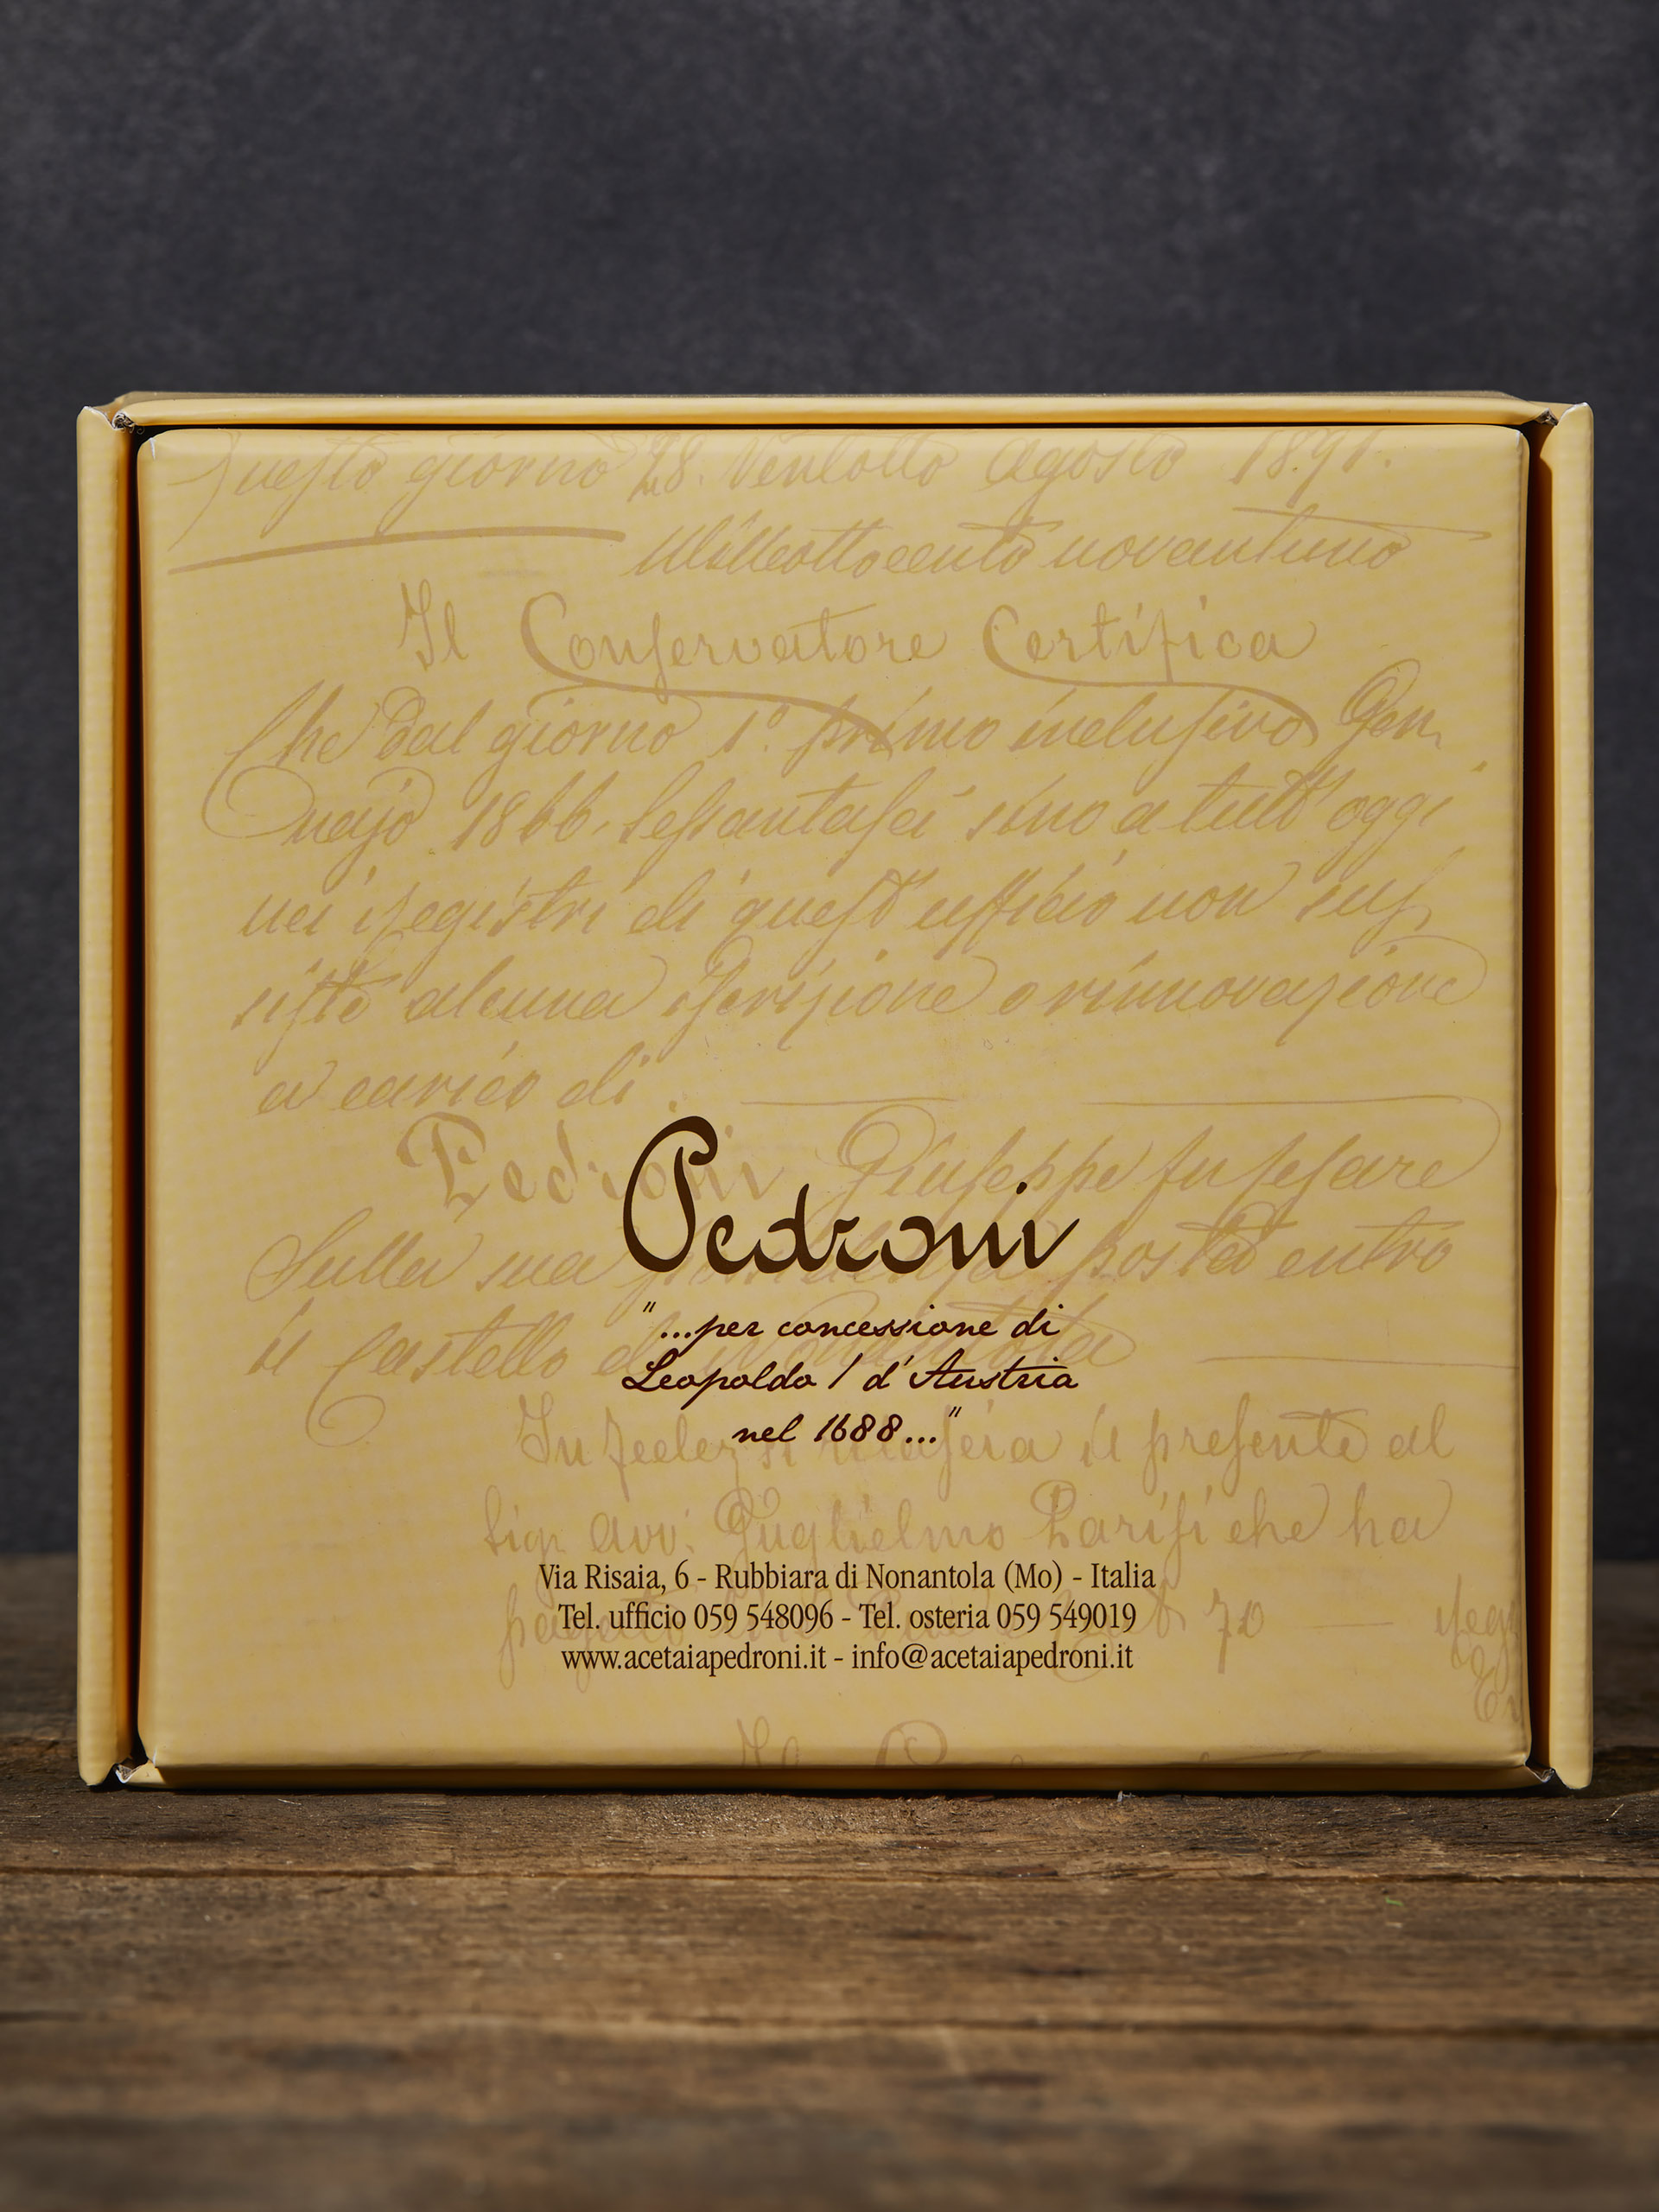 Questo giorno 28. Ventotto Agosto 1891.
Milleottocento novantuno
Il Conservatore Certifica
Che dal giorno 1º. primo inclusivo Gen,
najo 1866, sessantasei sino a tutt' oggi
nei registri di quest' ufficio non sus,
siste alcuna iscrizione o rinnovazione
a carico di
Pedroni Giuseppe fu Cesare
Sulla sua posta entro
il Castello di Nonantola
Pedroni
"...per concessione di
Leopoldo I d'Austria
nel 1688..."
In rilascia il presente al
Sig. Avv. Guglielmo Parisi che ha
Via Risaia, 6 - Rubbiara di Nonantola (Mo) - Italia
Tel. ufficio 059 548096 - Tel. osteria 059 549019
70
www.acetaiapedroni.it - info@acetaiapedroni.it
Il